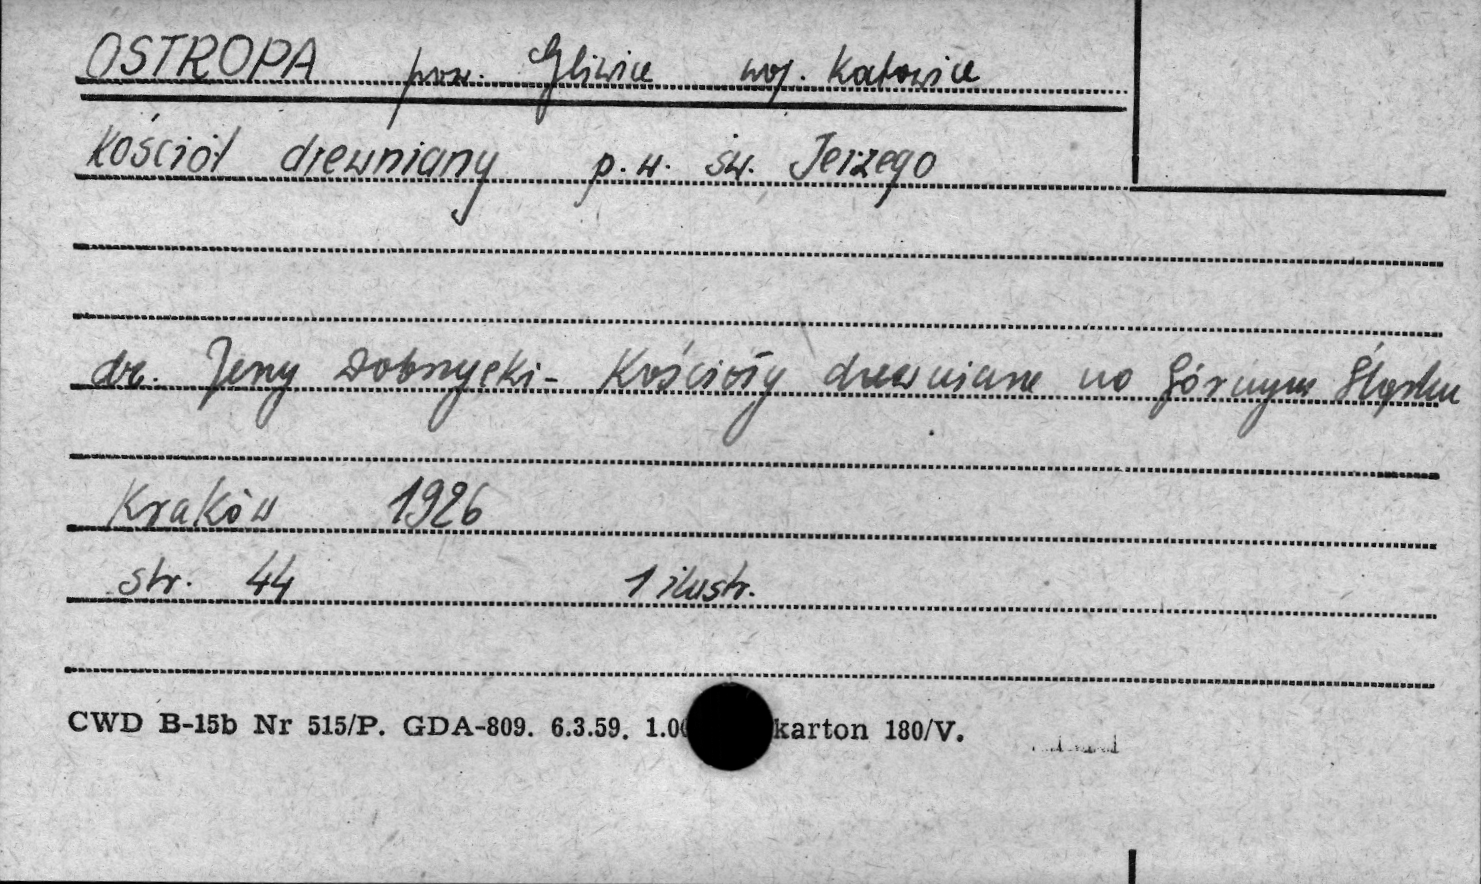 OSTROPA pow. Gliwice woj. Katowice
Kościół drewniany p.w. św. Jerzego
dr. Jerzy Dobrzycki - Kościoły drewniane na Górnym Śląsku
Kraków 1926
str. 44 1 ilustr.
CWD B-15b Nr 515/P. GDA-809. 6.3.59. 1.00 karton 180/V.